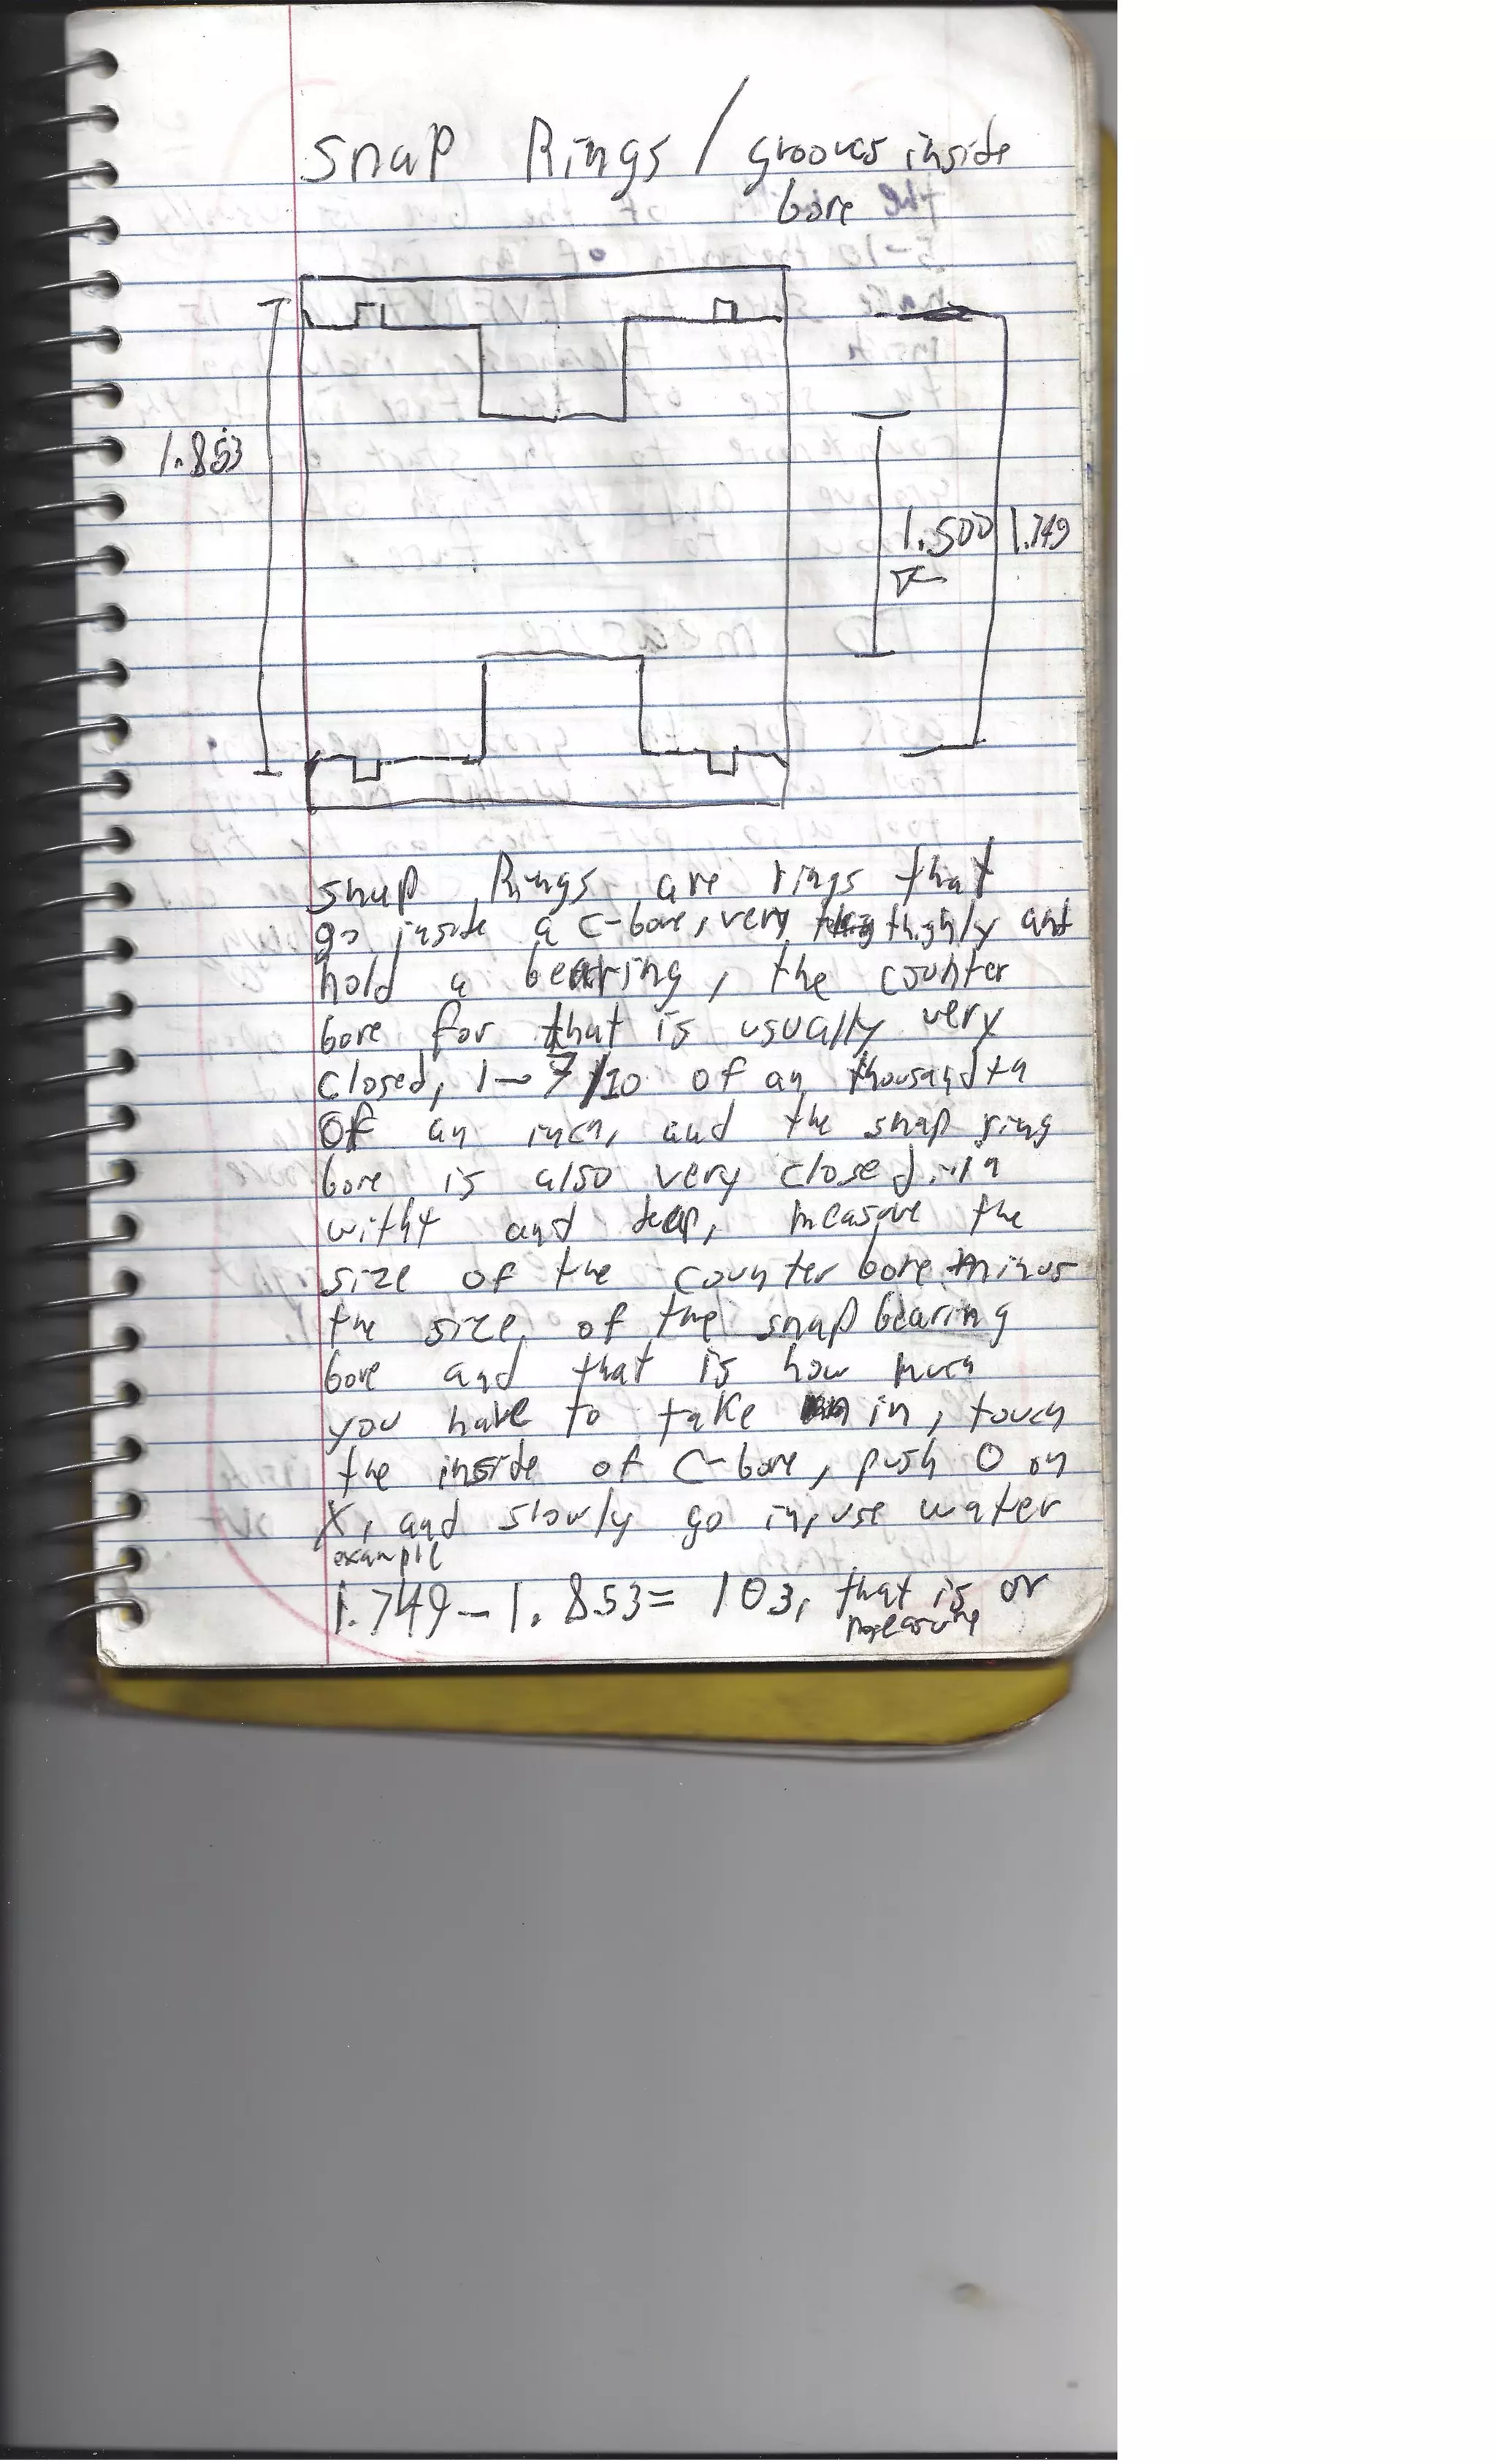 snap Rings / grooves inside
bore
1.853
1.500
1.749
snap Rings are rings that
go inside a C-bore, very thighly and
hold a bearring, the counter
bore for that is usually very
closed, 1-7/10 of an thousandth
Of an inch, and the snap ring
bore is also very closed in
witht and deep, measure the
size of the counter bore minus
the size of the snap bearing
bore and that is how much
you have to take in, touch
the inside of C-bore, push 0 on
X, and slowly go in, use water
example
1.749-1.853= 103, that is or
measure